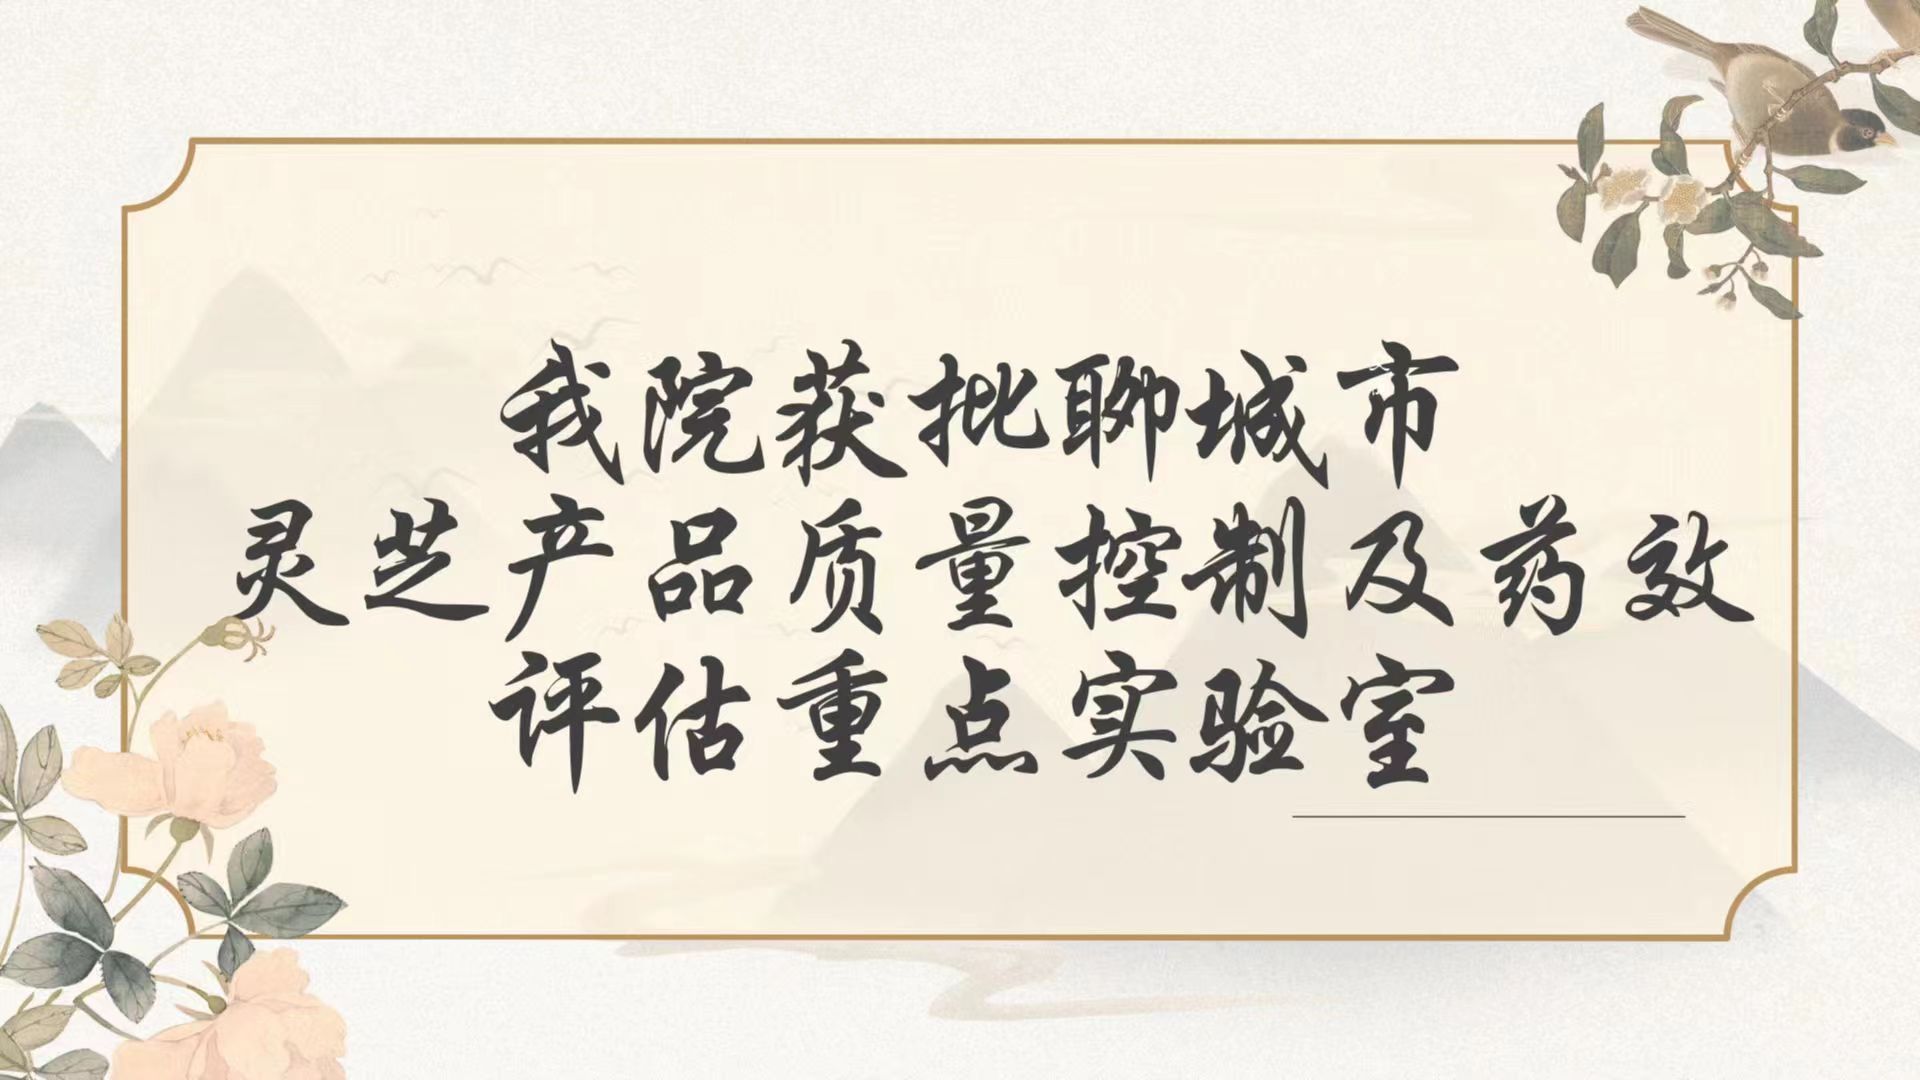 我院获批聊城市
灵芝产品质量控制及药效
评估重点实验室